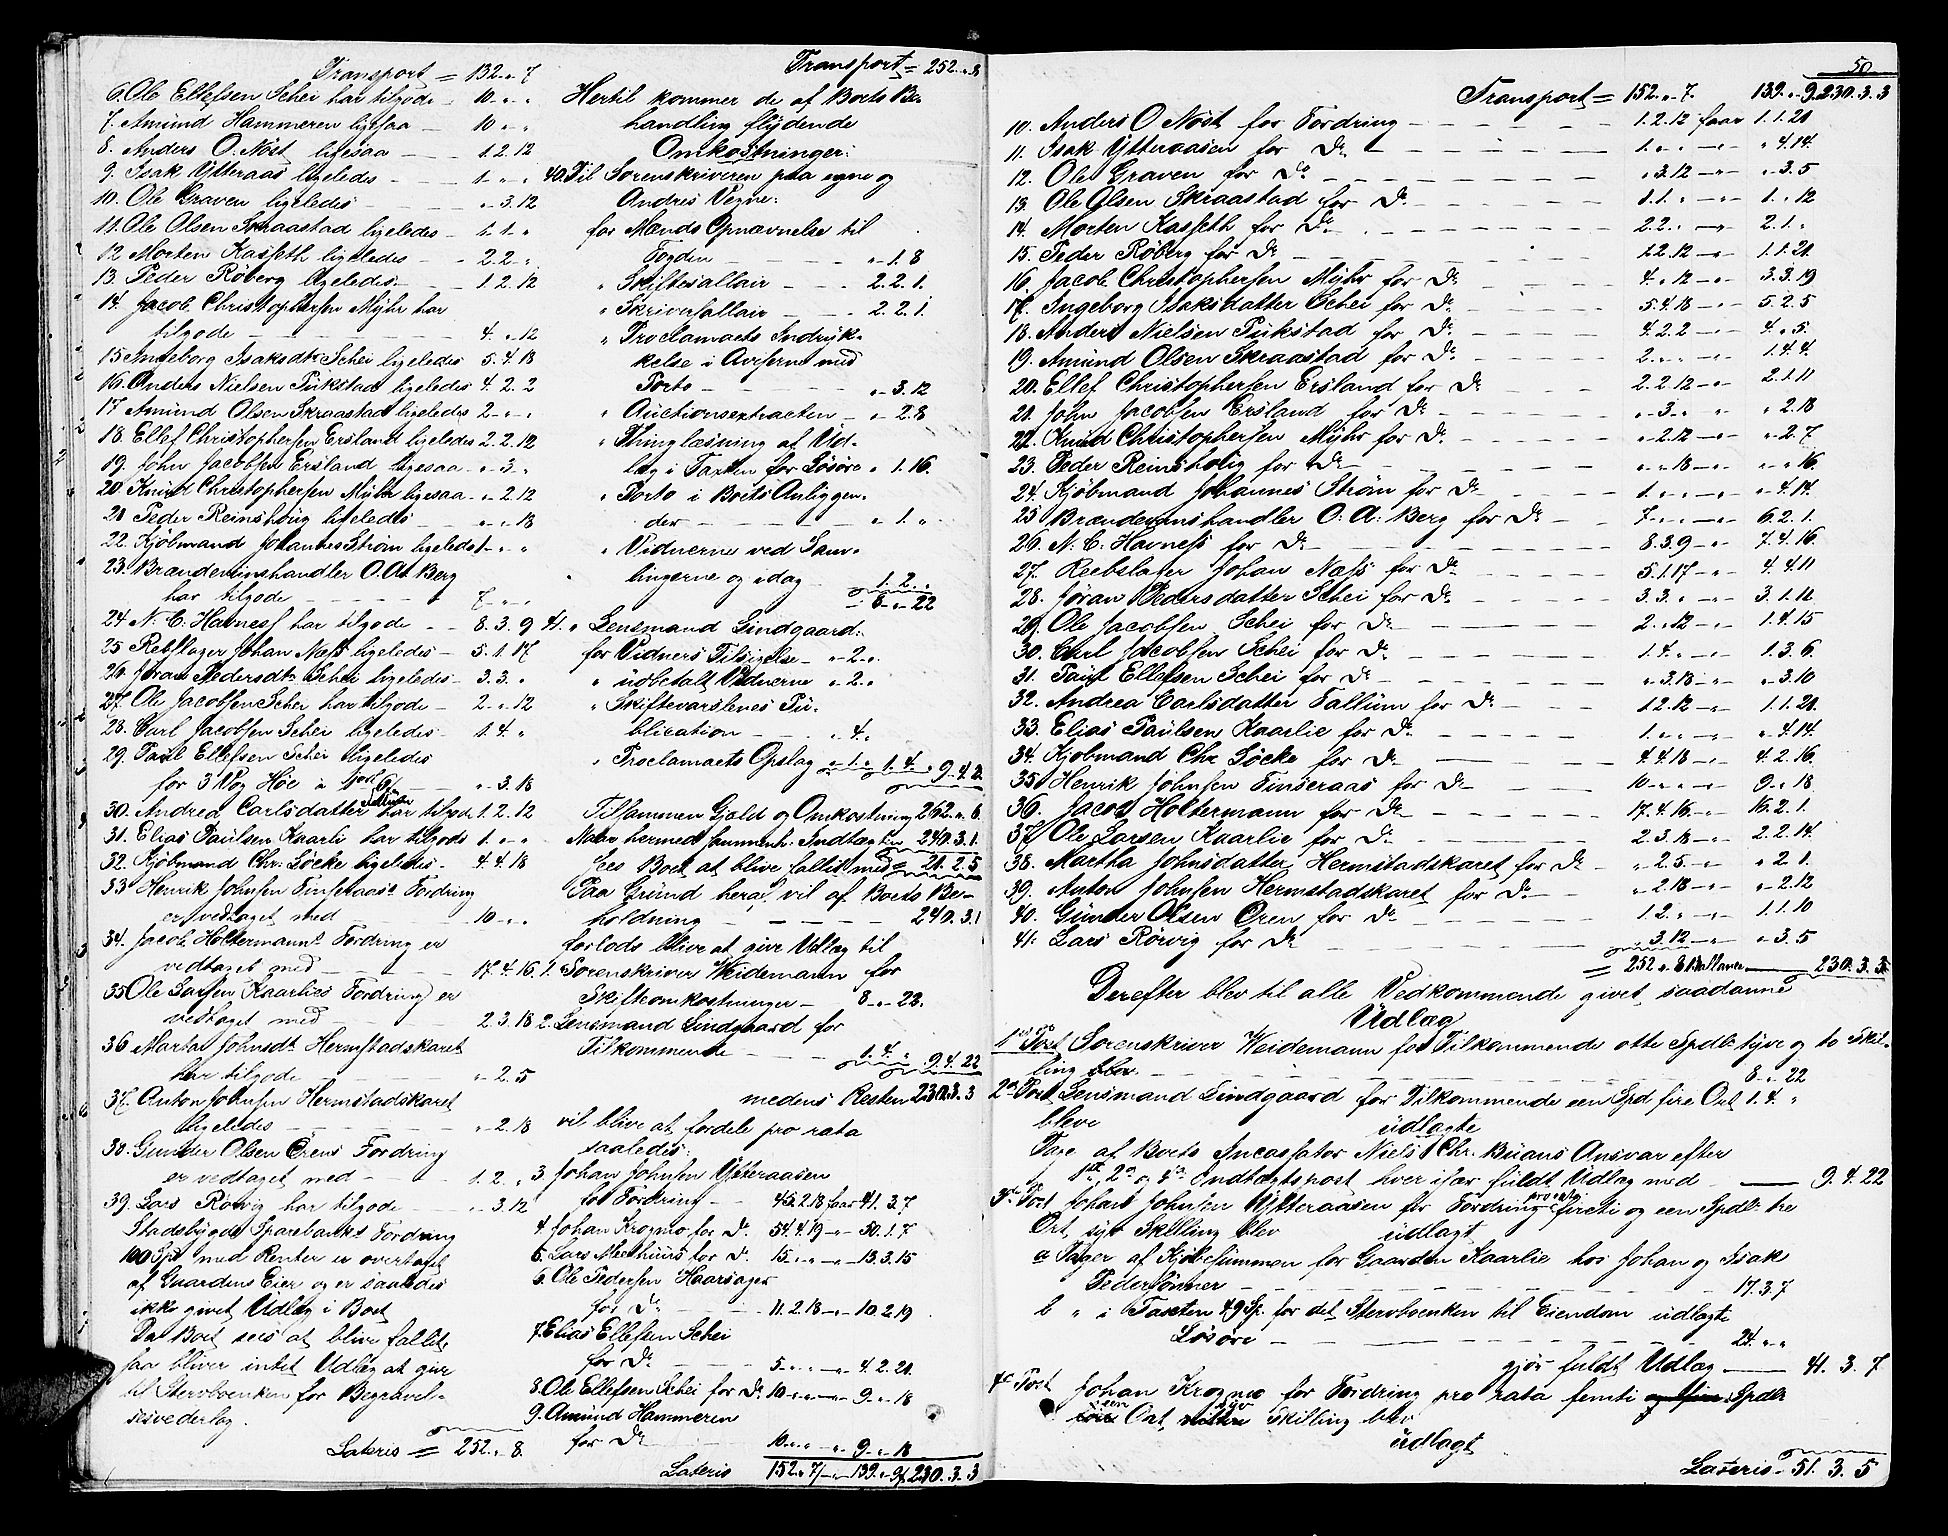 Transport = 132 " 7
6. Ole Ellefsen Schei har tilgode - 10 " "
7. Amund Hammeren ligesaa - 10 " "
8. Anders O. Nøst ligesaa - 1. 2. 12
9. Isak Ytteraas ligeledes - 1 " "
10. Ole Graven ligeledes - " 3. 12
11. Ole Olsen Skraastad ligeledes - 1. 1. "
12 Morten Kasseth ligeledes - 2. 2. "
13. Peder Røberg ligeledes - 1 2. 12
14. Jacob Christophersen Myhr har
tilgode - 4. " 12
15 Ingeborg Isaksdtr Schei ligeledes 5. 4. 18
16. Anders Nielsen Pukstad ligeledes 4. 2. 2
17 Amund Olsen Skraastad ligeledes 2 " "
18. Ellef Christophersen Ersland ligeledes 2. 2. 12
19. John Jacobsen Ersland ligesaa - " 3 "
20 Knud Christophersen Myhr ligesaa - " 2. 12
21 Peder Reinshoug ligeledes " " 18
22. Kjøbmand Johannes Strøm ligeledes 1 " "
23. Brændeviinshandler O. A. Berg
har tilgode - 7 " "
24 N. C. Havness har tilgode - 8. 3. 9
25 Rebslager Johan Næss ligeledes - 5. 1. 17
26 Jøran Pedersdtr Schei ligeledes - 3. 3. "
27. Ole Jacobsen Schei har tilgode - 2 " 12
28. Carl Jacobsen Schei ligeledes - 1. 4 "
29. Paul Ellefsen Schei ligeledes
for 3 Vog Høe - " 3. 18
30. Andrea Carlsdatter Fallum har tilgode 1. 2. 12
31. Elias Paulsen Kaarli har tilgode 1. " "
32. Kjøbmand Chr. Løcke ligeledes - 4. 4. 18
33 Henrik Johnsen Finseraas' Fordring
er vedtaget med - 10 " "
34. Jacob Holtermanns Fordring er
vedtaget med - 17. 4. 16.
35 Ole Larsen Kaarlies Fordring er
vedtaget med - 2. 3. 18
36 Martha Johnsdtr Hermstadskaret
har tilgode - " 2. 5
37. Anton Johnsen Hermstadskaret
ligeledes - " 2. 18
38. Gunder Olsen Ørens Fordring
er vedtaget med - 1. 2. "
39. Lars Rørvig har tilgode - " 3. 12
Stadsbygdens Sparebanks Fordring
100 Spd med Renter er overtaget
af Gaardens Eier og er saaledes
ikke givet Udlæg i Boet
Da Boet sees at blive fallit,
saa bliver intet Udlæg at give
til Stervboenken for Begravel-
sesvederlag.
Lateris = 252. " 8.
Transport = 252 " 8
Hertil kommer de af Boets Be-
handling flydende
Omkostninger:
40. Til Sorenskriveren paa egne og
Andres Vegne:
for Mænds Opnævnelse til
Fogden - " 1. 8
" Skiftesallair - 2. 2. 1.
" Skriversallair - 2. 2. 1.
" Proclamaets Indryk-
kelse i Aviserne med
Porto - " 3. 12
" Auctionsextracten - " 2. 8
" Thinglæsning af Ud-
læg i Taxten for Løsøre " 1. 16.
" Porto i Boets Anliggen-
der - " 1. "
" Vidnerne ved Sam-
lingerne og idag 1. 2. "
= 8 " 22
41. " Lensmand Lindgaard:
for Vidners Tilsigelse - " 2 "
" udbetalt Vidnerne " 2 "
" Skiftevarslenes Pu-
blication - " 4 "
" Proclamaets Opslag " 1. " 1. 4. " 9. 4. 22
Tilsammen Gjæld og Omkostning 262 " 6
Naar hermed sammenh. Indtægten 240. 3. 1.
sees Boet at blive fallit med = 21. 2. 5
Paa Grund heraf vil af Boets Be-
holdning - 240. 3. 1
forlods blive at give Udlæg til
1. Sorenskriver Weidemann for
Skifteomkostninger - 8 " 22.
2. Lensmand Lindgaard for
Tilkommende - 1. 4. " 9. 4. 22
medens Resten 230. 3. 3
vil blive at fordele pro rata
saaledes:
3 Johan Johnsen Ytteraasen
for Fordring - 45. 2. 18 faar 41. 3. 7
4 Johan Krogmo for Do. 54. 4. 19 - " 50. 1. 7
5. Lars Meethuus for Do. 15 " " - " 13. 3. 15
6. Ole Pedersen Haarsager
for Do - 11. 2. 18 - " 10. 2. 19
7. Elias Ellefsen Schei
for Do - 5 " " - " 4. 2. 21
8. Ole Ellefsen Schei for Do 10 " " - " 9. " 18
9. Amund Hammeren
for Do - 10 " " - " 9. " 18
Lateris 152 " 7 - " 139. " 9 230. 3. 3
50
Transport = 152 " 7. 139. " 9. 230. 3. 3
10. Anders O Nøst for Fordring - 1. 2. 12 faar 1. 1. 21
11. Isak Ytteraasen for Do - 1. " " - " " 4. 14.
12. Ole Graven for Do - " 3. 12 - " " 3. 5
13 Ole Olsen Skraastad for Do - 1. 1. " - " 1. " 12
14. Morten Kasseth for Do - 2. 2. " - " 2. 1. "
15. Peder Røberg for Do - 1. 2. 12 - " 1. 1. 21
16. Jacob Christophersen Myhr for Do - 4. " 12 - " 3. 3. 19
17. Ingeborg Isaksdatter Schei for Do - 5. 4. 18 - " 5. 2. 5
18. Anders Nielsen Pukstad for Do - 4. 2. 2 - " 4. " 5.
19. Amund Olsen Skraastad for Do - 2. " " - " 1. 4. 4.
20. Ellef Christophersen Ersland for Do - 2. 2. 12 - " 2. 1. 11
21. John Jacobsen Ersland for Do - " 3. " " " 2. 18
22. Knud Christophersen Myhr for Do - " 2. 12 - " " 2. 7
23. Peder Reinshoug for Do - " " 18 - " " " 16.
24. Kjøbmand Johannes Strøm for Do - 1. " " - " " 4. 14.
25 Brændevinshandler O. A. Berg for Do - 7 " " - " 6. 2. 1.
26. N. C. Havness for Do - 8. 3. 9 - " 7. 4. 16.
27. Reebslager Johan Næss for Do - 5. 1. 17 - " 4. 4. 11
28. Jøran Pedersdatter Schei for Do - 3. 3. " - " 3. 1. 11
29. Ole Jacobsen Schei for Do - 2. " 12 - " 1. 4. 15
30. Carl Jacobsen Schei for Do - 1. 4. " - " 1. 3. 6.
31. Paul Ellefsen Schei for Do - " 3. 18 - " " 3. 10
32. Andrea Carlsdatter Fallum for Do - 1 2. 12 - " 1. 1. 21.
33. Elias Paulsen Kaarlie for Do - 1. " " - " " 4. 14.
34. Kjøbmand Chr Løcke for Do - 4. 4. 18 - " 4. 2. 16.
35 Henrik Johnsen Finseraas for Do - 10 " " - " 9. " 18.
36. Jacob Holtermann for Do - 17. 4. 16. - " 16. 2. 1.
37. Ole Larsen Kaarlie for Do - 2. 3. 18 - " 2. 2. 14.
38. Martha Johnsdatter Hermstadskaret for Do - " 2. 5 - " " 2. 1.
39. Anton Johnsen Hermstadskaret for Do - " 2. 18 - " " 2. 12
40. Gunder Olsen Øren for Do - 1. 2. " - " 1. 1. 10
41. Lars Rørvig for Do " 3. 12 - " " 3. 5
= 252 " 8 tilsammen 230. 3. 3.
Derefter blev til alle Vedkommende givet saadanne
Udlæg
1ste Post Sorenskriver Weidemann for Tilkommende otte Spdlr tyve og to Skil-
ling - 8 " 22
2den Post Lensmand Lindgaard for Tilkommende een Spd fire Ort 1. 4. "
bleve udlagte
Tage af Boets Incassator Niels Chr. Buans Ansvar efter
1ste, 2den og 4de Indtægtspost hver især fuldt Udlæg med - 9. 4. 22
3die Post Johan Johnsen Ytteraasen for Fordring pro rata firti og een Spdlr tre
Ort, syv Skilling blev udlagt
a Tager af Kjøbesummen for Gaarden Kaarlie hos Johan og Isak
Pedersønner - 17. 3. 7
b " i Taxten 49 Sp. for det Stervboenken til Eiendom udlagte
Løsøre - 24. " "
gjør fuldt Udlæg - 41. 3. 7
4de Post Johan Krogmo for Fordring pro rata femti Spdlr
een Ort, syv Skilling blev
udlagt
Lateris - 51. 3. 5